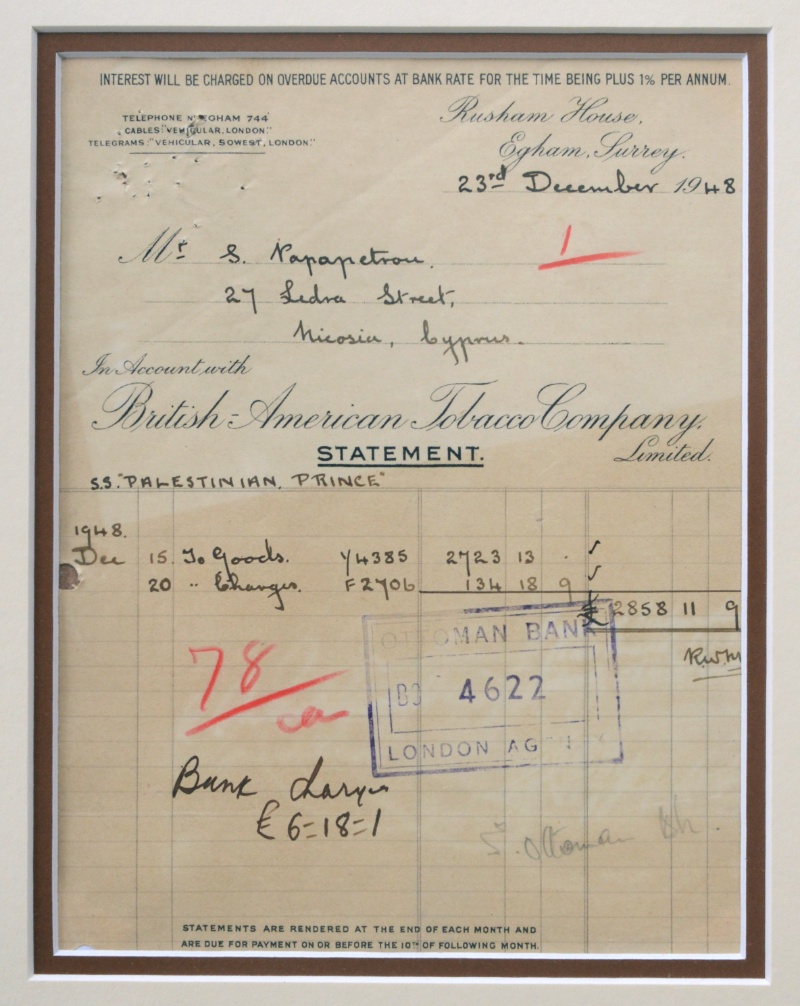 INTEREST WILL BE CHARGED ON OVERDUE ACCOUNTS AT BANK RATE FOR THE TIME BEING PLUS 1% PER ANNUM.
TELEPHONE Nº EGHAM 744
CABLES "VEHICULAR, LONDON."
TELEGRAMS: "VEHICULAR, SOWEST, LONDON."
Rusham House,
Egham, Surrey.
23rd December 1948
1
Mr S. Papapetrou.
27 Ledra Street,
Nicosia, Cyprus.
In Account with
British-American Tobacco Company,
Limited.
STATEMENT.
S.S. "PALESTINIAN PRINCE"
1948.
Dec 15. To Goods. Y4385 2723 13 . ✓
20 " Charges. F2706 134 18 9 ✓
£ 2858 11 9
OTTOMAN BANK
4622
LONDON AGENCY
78
Bank Charges
£6=18=1
Ottoman Bk.
STATEMENTS ARE RENDERED AT THE END OF EACH MONTH AND
ARE DUE FOR PAYMENT ON OR BEFORE THE 10TH OF FOLLOWING MONTH.